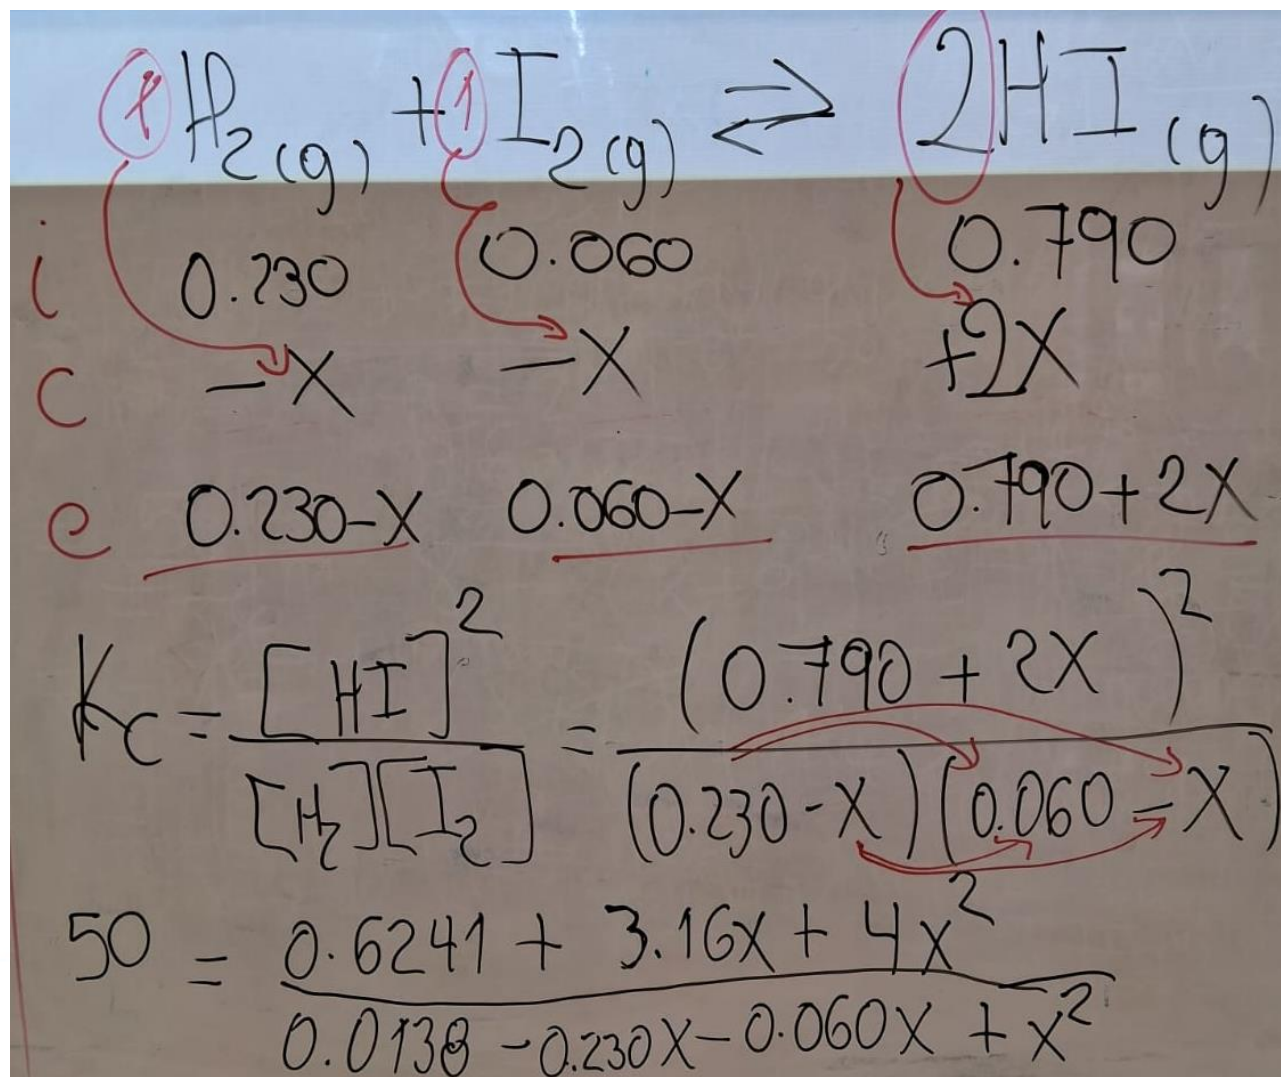 1H₂(g) + 1I₂(g) ⇌ 2HI(g)
i 0.230 0.060 0.790
c -X -X +2X
e 0.230-X 0.060-X 0.790+2X
Kc = [HI]² / [H₂][I₂] = (0.790 + 2X)² / (0.230 - X)(0.060 - X)
50 = 0.6241 + 3.16x + 4x² / 0.0138 - 0.230X - 0.060X + X²